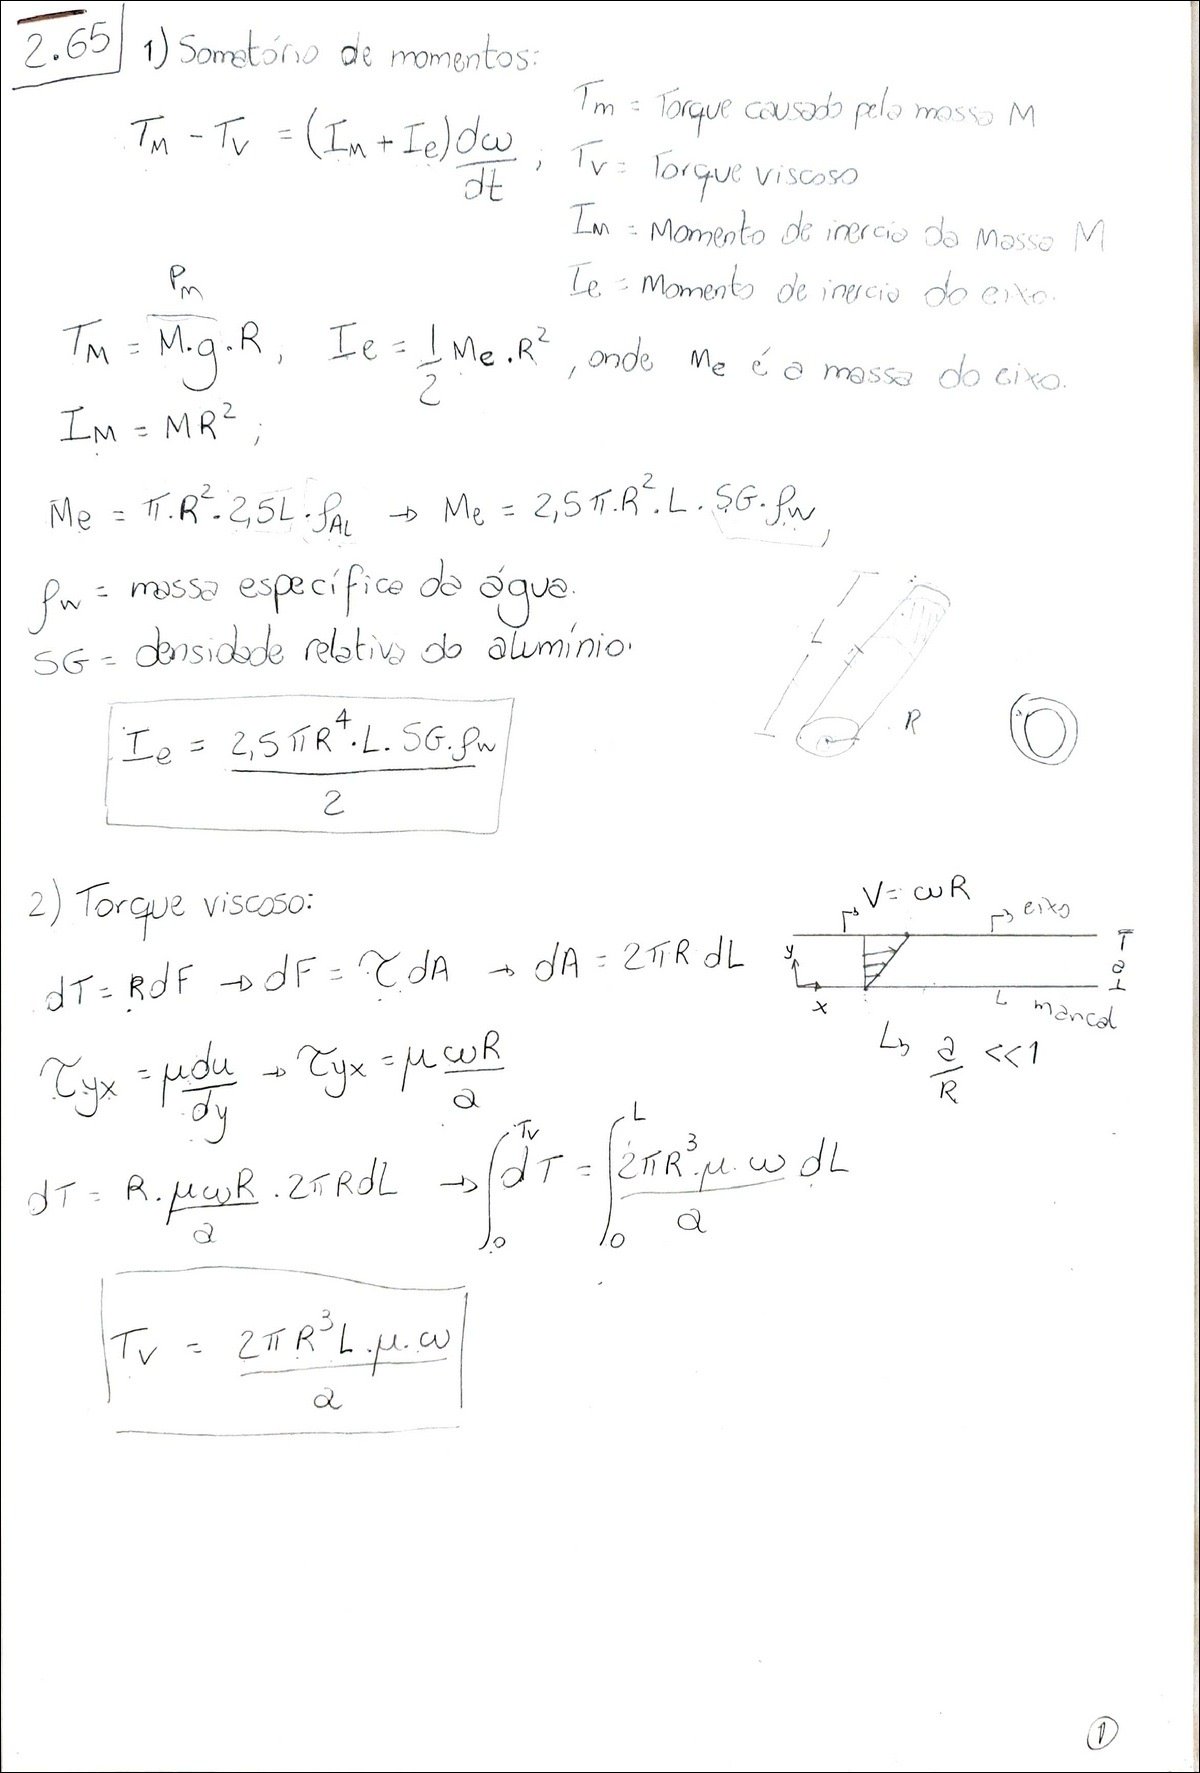 2.65 1) Somatório de momentos:
T_M - T_V = (I_M + I_e) dω/dt ;
T_m = Torque causado pela massa M
T_V = Torque viscoso
I_M = Momento de inercia da massa M
I_e = Momento de inercia do eixo.
P_M
T_M = M.g.R, I_e = 1/2 M_e.R², onde M_e é a massa do eixo.
I_M = MR² ;
M_e = π.R².2,5L.ρ_AL → M_e = 2,5π.R².L.SG.ρ_w,
ρ_w = massa específica da água.
SG = densidade relativa do alumínio.
L
R
I_e = 2,5πR⁴.L.SG.ρ_w / 2
2) Torque viscoso:
V = ωR
eixo
y
x
a
L mancal
dT = RdF → dF = τdA → dA = 2πR dL
a/R <<1
τ_yx = μ du/dy → τ_yx = μ ωR/a
dT = R.μωR/a . 2πRdL → ∫₀^Tv dT = ∫₀^L 2πR³.μ.ω/a dL
T_V = 2πR³L.μ.ω / a
1